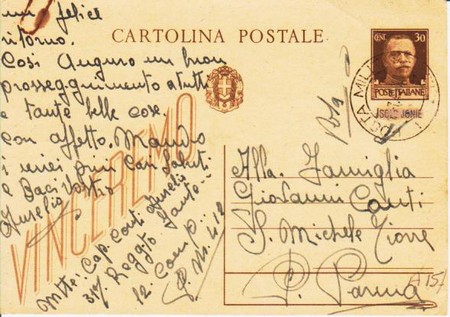 un felice
ritorno.
Così Auguro un buon
proseguimento a tutti
e tante belle cose.
con affetto. Mando
i miei più cari saluti
e Baci Vostro
Aurelio
CARTOLINA POSTALE
CENT. 30
POSTE ITALIANE
ISOLE JONIE
VINCEREMO
Alla Famiglia
Giovanni Conti
S. Michele Tiorre
P. Parma
Mtte: Cap. Conti Aurelio
317. Reggto Fant.
12. Comp.
P. M. 412